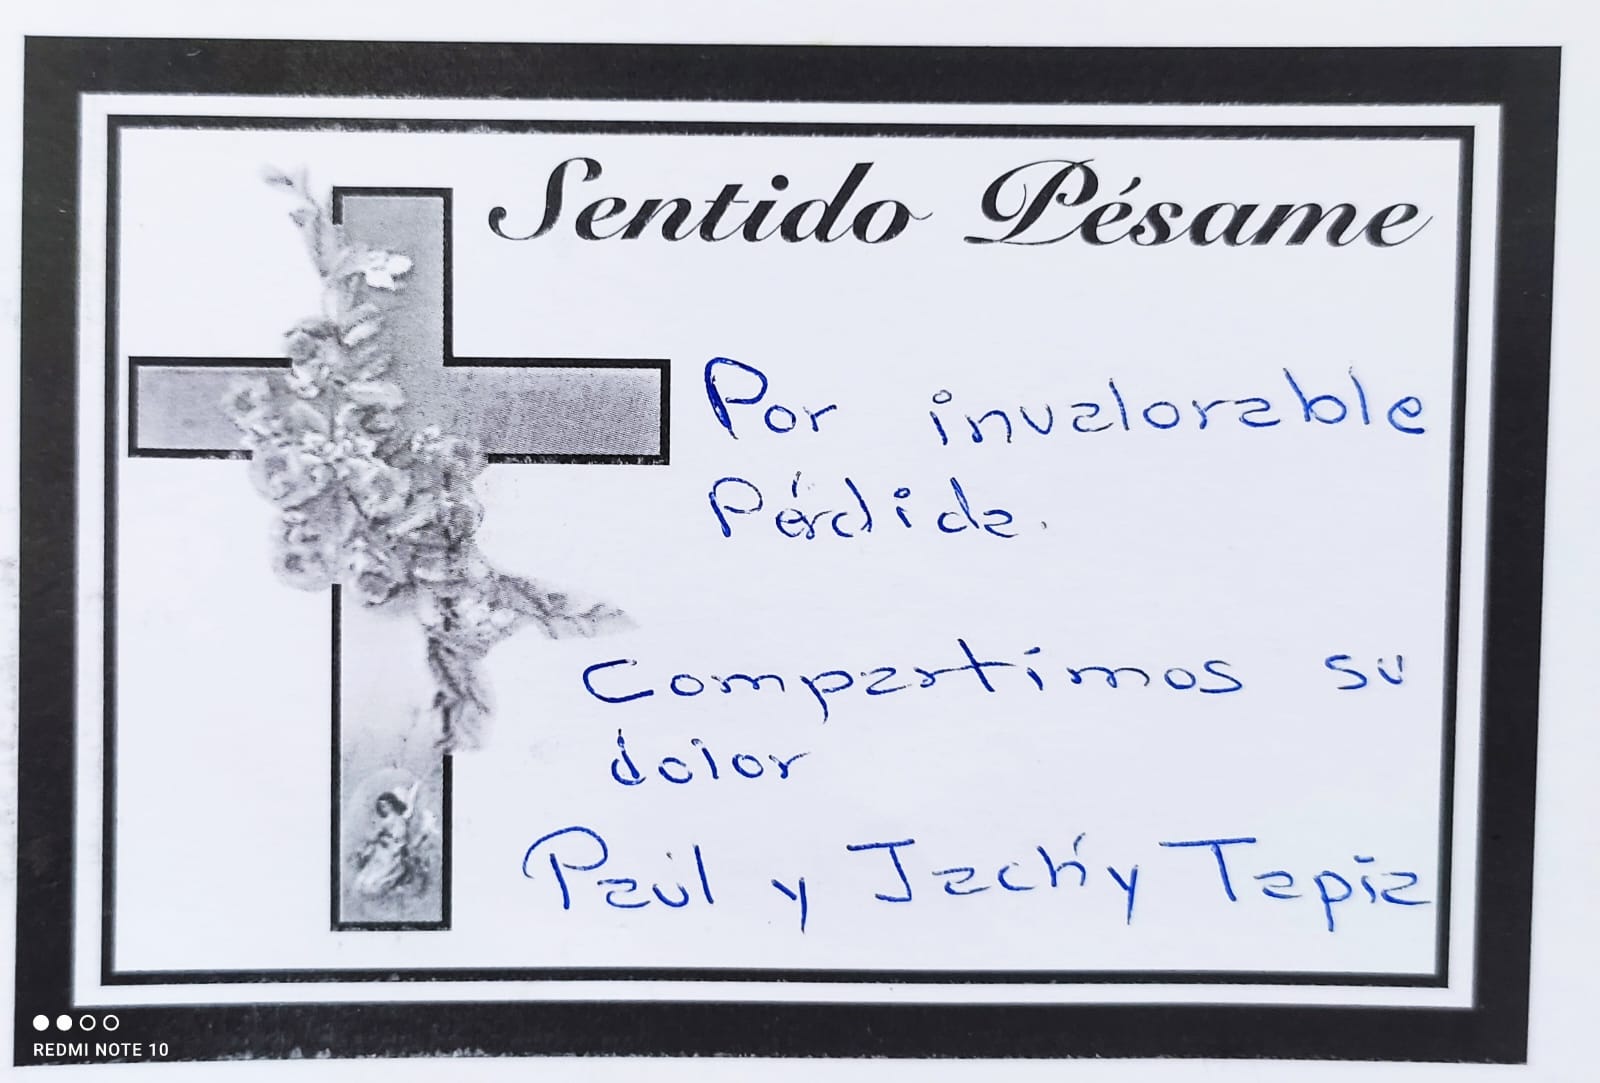 Sentido Pésame
Por invalorable
Pérdida.
Compartimos su
dolor
Paúl y Jachy Tapia
REDMI NOTE 10